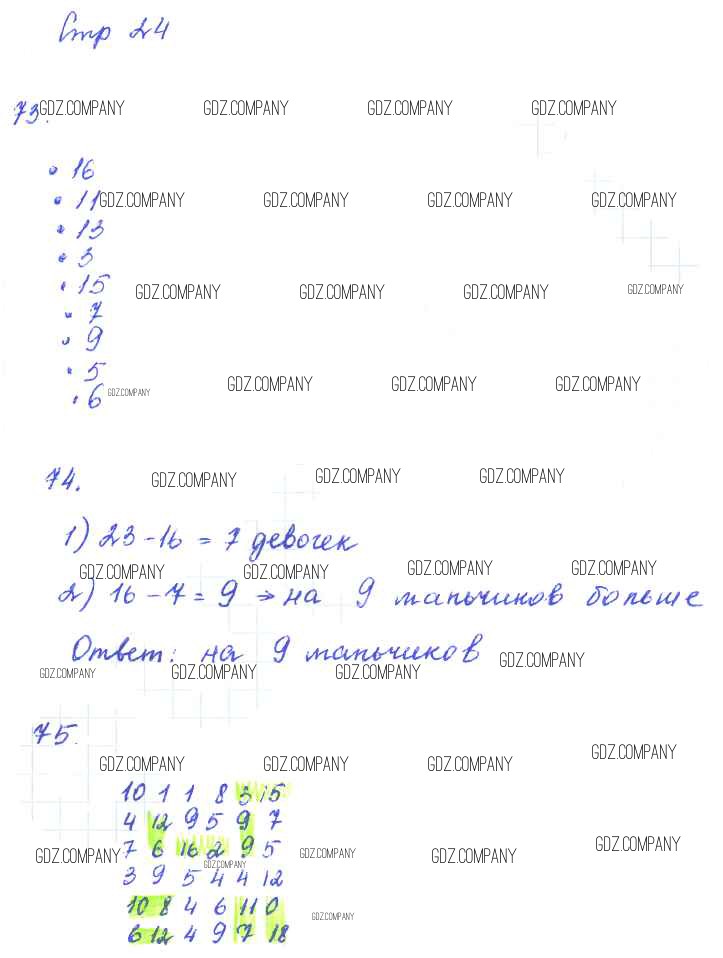 Стр 24
73. GDZ.COMPANY GDZ.COMPANY GDZ.COMPANY GDZ.COMPANY
• 16
• 11 GDZ.COMPANY GDZ.COMPANY GDZ.COMPANY GDZ.COMPANY
• 13
• 3
• 15 GDZ.COMPANY GDZ.COMPANY GDZ.COMPANY GDZ.COMPANY
• 7
• 9
• 5 GDZ.COMPANY GDZ.COMPANY GDZ.COMPANY
• 6 GDZ.COMPANY
74. GDZ.COMPANY GDZ.COMPANY GDZ.COMPANY
1) 23 - 16 = 7 девочек
GDZ.COMPANY GDZ.COMPANY GDZ.COMPANY GDZ.COMPANY
2) 16 - 7 = 9 → на 9 мальчиков больше
Ответ: на 9 мальчиков GDZ.COMPANY
GDZ.COMPANY GDZ.COMPANY GDZ.COMPANY
75.
GDZ.COMPANY GDZ.COMPANY GDZ.COMPANY GDZ.COMPANY
10 1 1 8 3 15
4 12 9 5 9 7
7 6 16 2 9 5
GDZ.COMPANY GDZ.COMPANY GDZ.COMPANY GDZ.COMPANY GDZ.COMPANY
3 9 5 4 4 12
10 8 4 6 11 0
GDZ.COMPANY
6 12 4 9 7 18